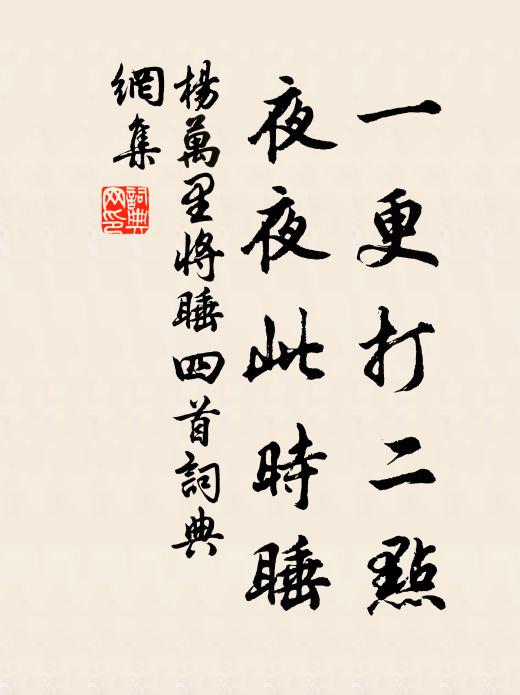 一更打二點
夜夜此時睡
楊萬里將睡四首詞典
網集
詞典
网印